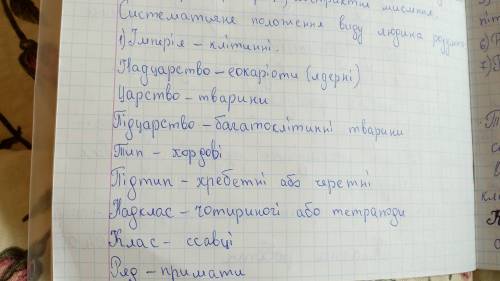 абстрактне мислення.
Систематичне положення виду людина розумна
1) Імперія – клітинні.
Надцарство – еокаріоти (ядерні)
Царство – тварини
Підцарство – багатослітинні тварини
Тип – хордові
Підтип – хребетні або черетні
Надклас – чотириногі або тетраподи
Клас – ссавці
Ряд – примати
6)
7)